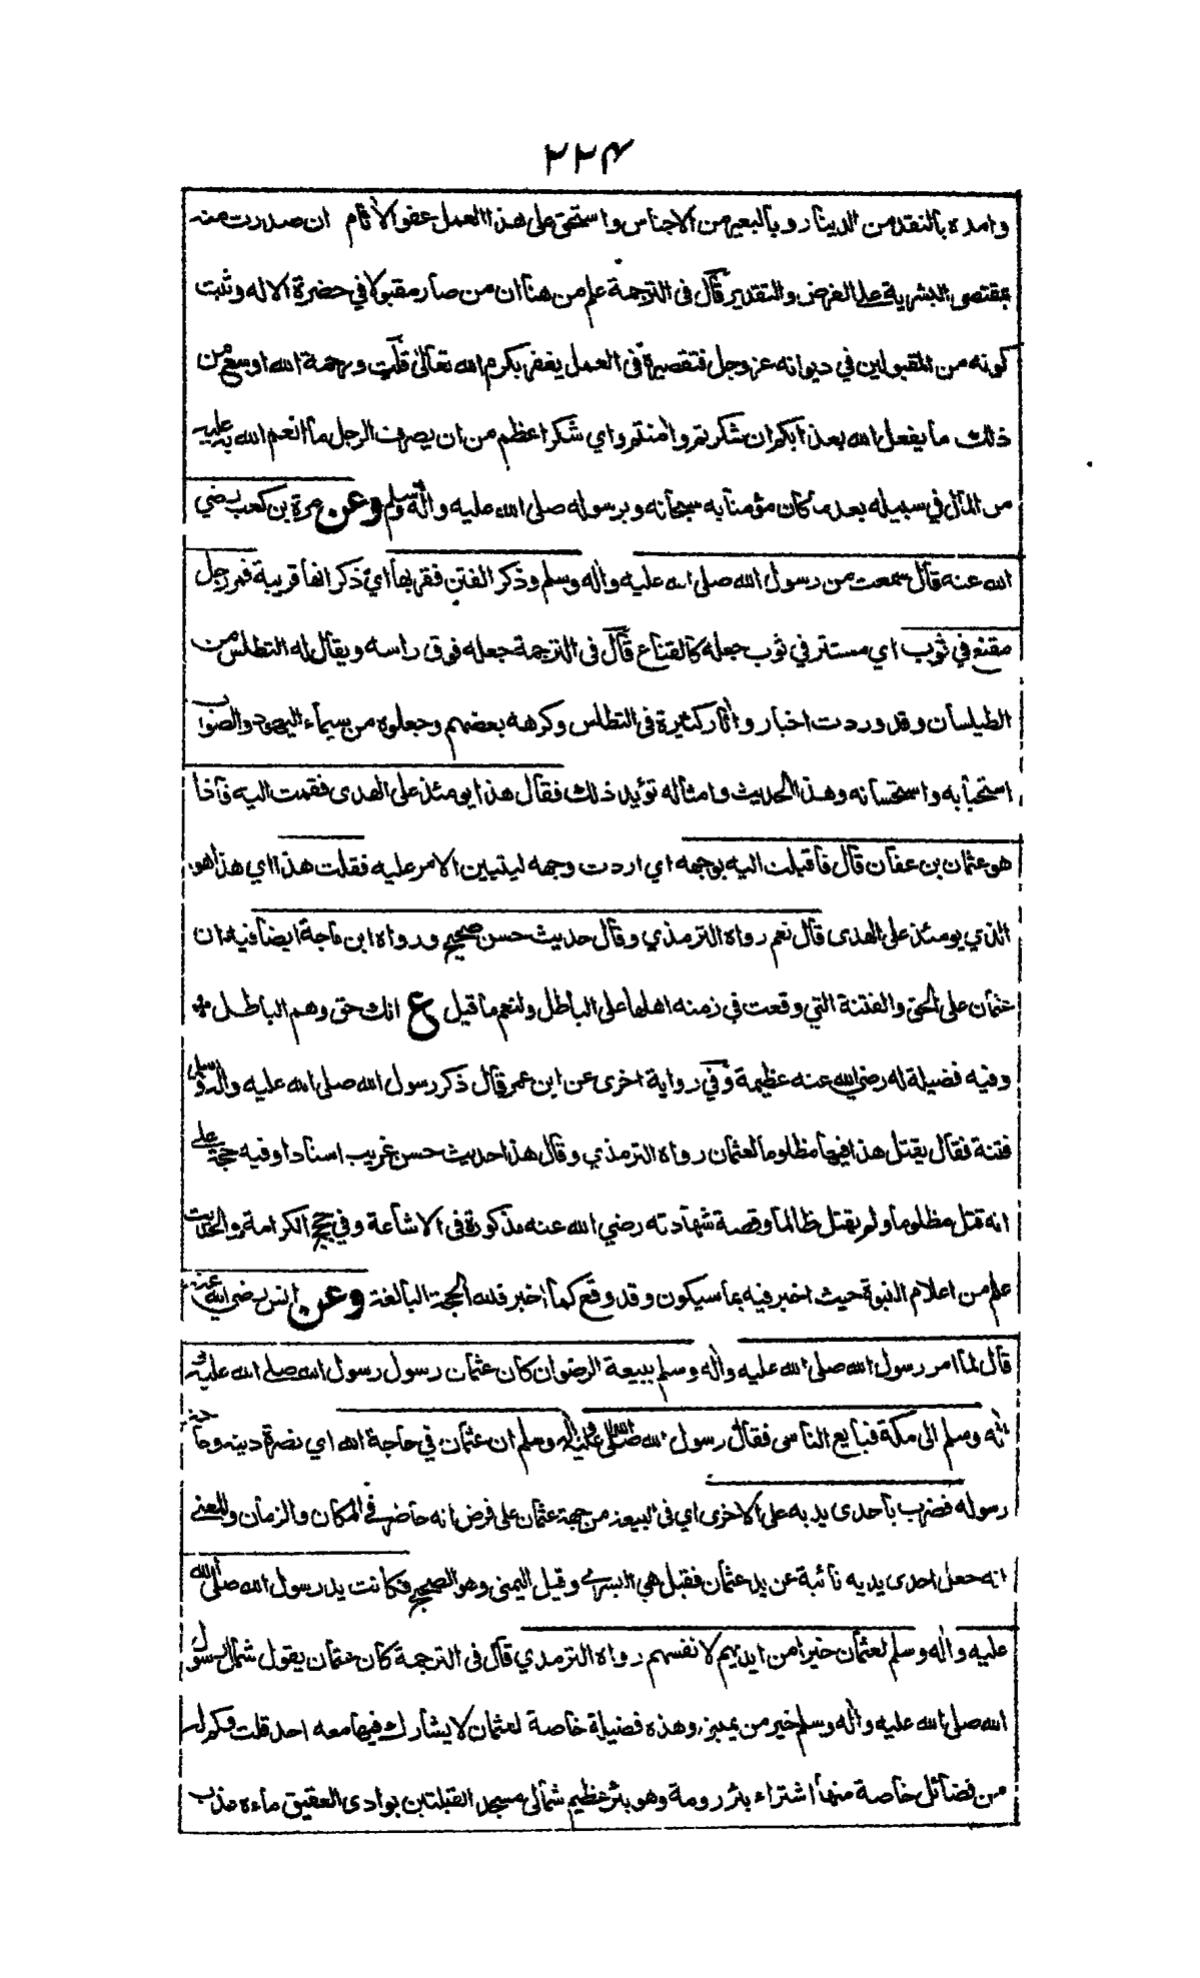 ٢٢٤
وامده بالنقد من الدينار وبالبعير من الاجناس واستحق على هذا العمل عفو الأثام ان صدرت منه
بمقتضى البشرية على الفرض والتقدير قال في الترجمة علم من هنا ان من صار مقبولا في حضرة الاله وثبت
كونه من المقبولين في ديوانه عز وجل فتقصيره في العمل يغفر بكرم الله تعالى قلت ورحمة الله اوسع من
ذلك ما يفعل الله بعذابكم ان شكرتم وامنتم واي شكر اعظم من ان يصرف الرجل ما انعم الله به عليه
من المال في سبيله بعد ما كان مؤمنا به سبحانه وبرسوله صلى الله عليه واله وسلم وعن مرة بن كعب رضي
الله عنه قال سمعت من رسول الله صلى الله عليه واله وسلم وذكر الفتن فقربها اي ذكر انها قريبة فمر رجل
مقنع في ثوب اي مستتر في ثوب جعله كالقناع قال في الترجمة جعله فوق راسه ويقال له التطلس من
الطيلسان وقد وردت اخبار واثار كثيرة في التطلس وكرهه بعضهم وجعلوه من سيماء اليهود والصواب
استحبابه واستحسانه وهذا الحديث وامثاله تؤيد ذلك فقال هذا يومئذ على الهدى فقمت اليه فاذا
هو عثمان بن عفان قال فاقبلت اليه بوجهه اي اردت وجهه ليتبين الامر عليه فقلت هذا اي هذا هو
الذي يومئذ على الهدى قال نعم رواه الترمذي وقال حديث حسن صحيح ورواه ابن ماجة ايضا فيه ان
عثمان على الحق والفتنة التي وقعت في زمنه اهلها على الباطل ولنعم ما قيل ع انك حق وهم الباطل
وفيه فضيلة له رضي الله عنه عظيمة وفي رواية اخرى عن ابن عمر قال ذكر رسول الله صلى الله عليه واله وسلم
فتنة فقال يقتل هذا فيها مظلوما لعثمان رواه الترمذي وقال هذا حديث حسن غريب اسنادا وفيه حجة على
انه قتل مظلوما ولم يقتل ظالما وقصة شهادته رضي الله عنه مذكورة في الاشاعة وفي حجج الكرامة والحديث
علم من اعلام النبوة حيث اخبر فيه بما سيكون وقد وقع كما اخبر فلله الحجة البالغة وعن انس رضي الله عنه
قال لما امر رسول الله صلى الله عليه واله وسلم ببيعة الرضوان كان عثمان رسول رسول الله صلى الله عليه
واله وسلم الى مكة فبايع الناس فقال رسول الله صلى الله عليه واله وسلم ان عثمان في حاجة الله اي نصرة دينه وحاجة
رسوله فضرب باحدى يديه على الاخرى اي في البيعة من جهة عثمان على فرض انه حاضر في المكان والزمان والمعنى
انه جعل احدى يديه نائبة عن يد عثمان فقيل هي اليسرى وقيل اليمنى وهو الصحيح فكانت يد رسول الله صلى الله
عليه واله وسلم لعثمان خيرا من ايديهم لانفسهم رواه الترمذي قال في الترجمة كان عثمان يقول شمال رسول
الله صلى الله عليه واله وسلم خير من يميني وهذه فضيلة خاصة لعثمان لا يشارك فيها معه احد قلت وكم له
من فضائل خاصة منها اشتراء بئر رومة وهو بئر عظيم شمالي مسجد القبلتين بوادى العقيق ماءه عذب